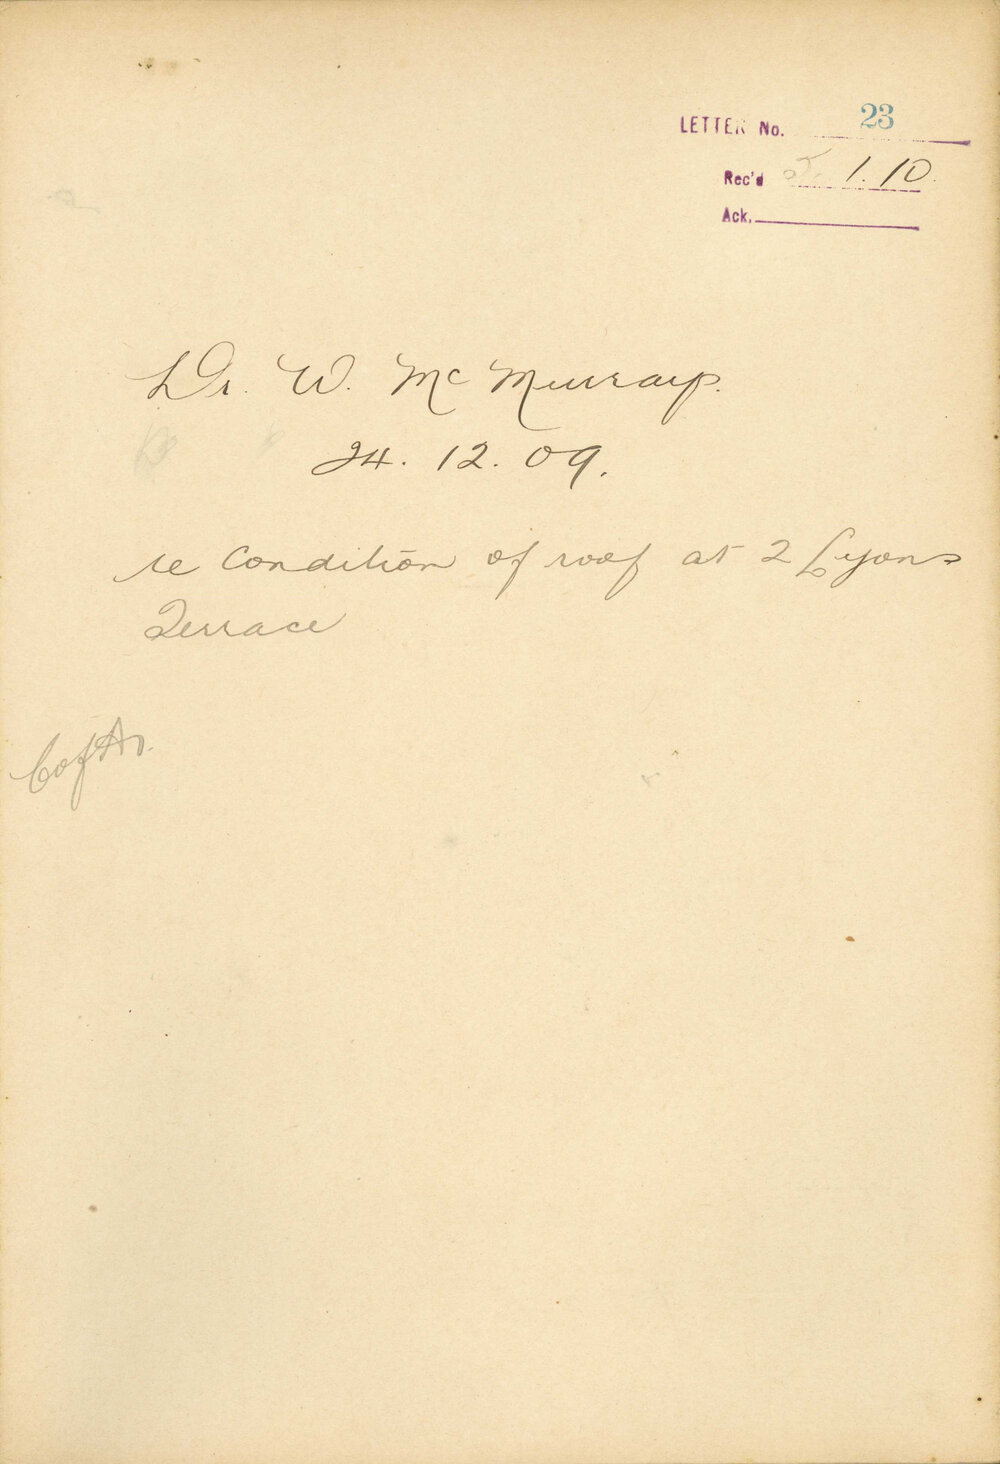 LETTER No. 23
Rec'd 5. 1. 10.
Ack.
Dr. W. McMurray.
24. 12. 09.
re Condition of roof at 2 Lyons
Terrace